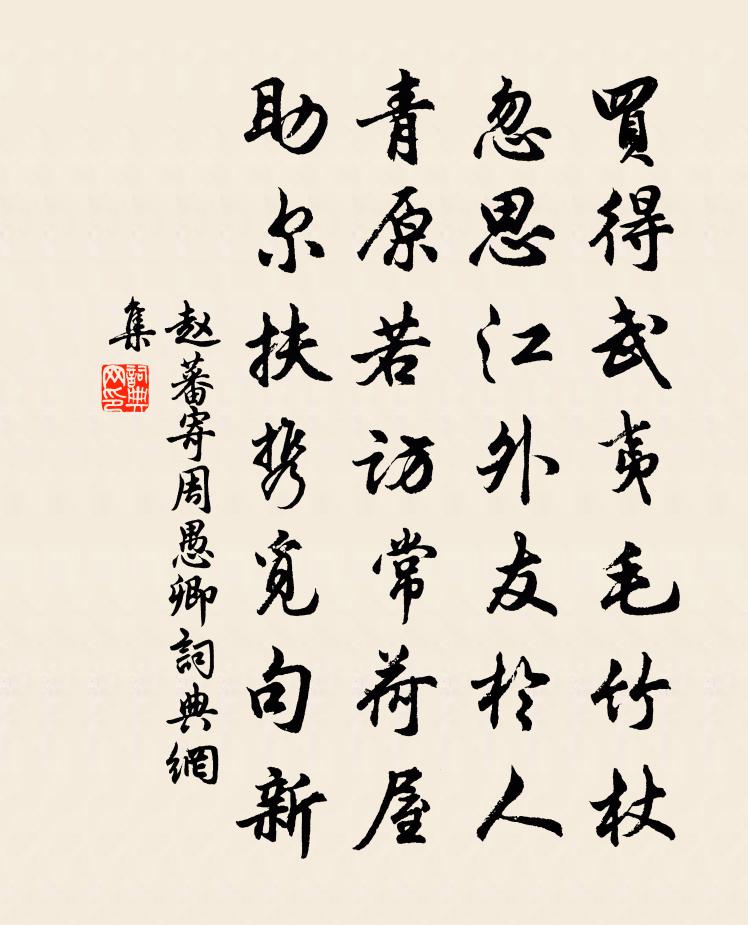 買得武夷毛竹杖
忽思江外友於人
青原若访常荷屋
助尔扶携觅句新
赵蕃寄周愚卿詞典網
集
詞典网印